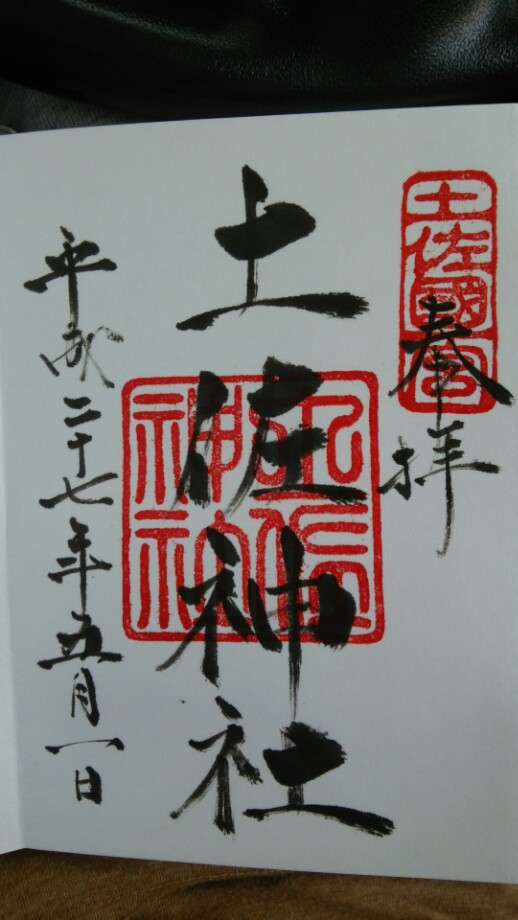 奉拝
土佐國一宮
土佐神社
土佐神社
平成二十七年五月一日